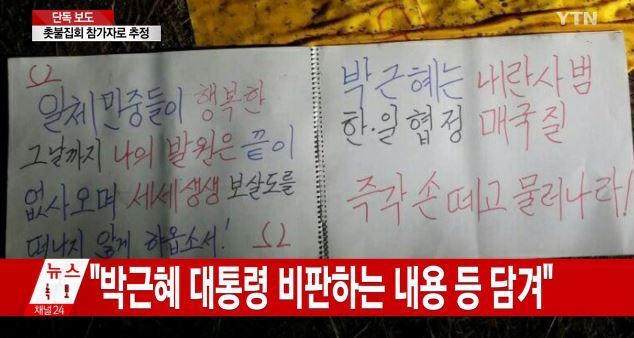 단독 보도
촛불집회 참가자로 추정
YTN
Ω
일체 민중들이 행복한
그날까지 나의 발원은 끝이
없사오며 세세생생 보살도를
떠나지 않게 하옵소서! Ω
박근혜는 내란사범
한·일협정 매국질
즉각 손 떼고 물러나라!
뉴스
채널24
"박근혜 대통령 비판하는 내용 등 담겨"